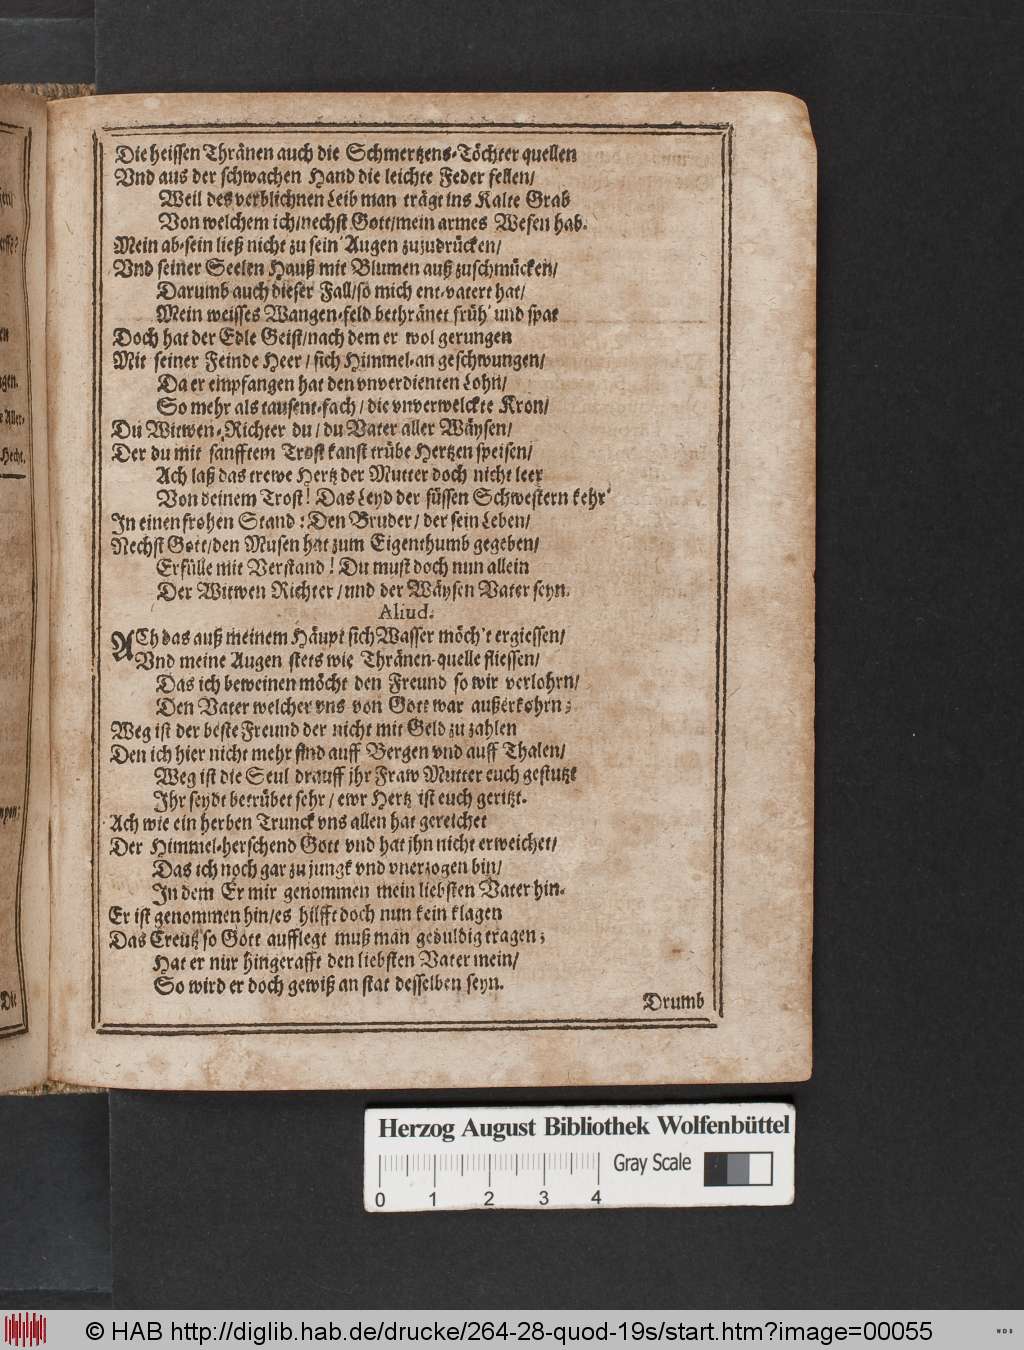 Die heissen Thränen auch die Schmertzens-Töchter quellen
Vnd aus der schwachen Hand die leichte Feder fellen/
Weil des verblichnen Leib man trägt ins Kalte Grab
Von welchem ich/nechst Gott/mein armes Wesen hab.
Mein ab-sein ließ nicht zu sein' Augen zuzudrücken/
Vnd seiner Seelen Hauß mit Blumen auß zuschmücken/
Darumb auch dieser Fall/so mich ent-vatert hat/
Mein weisses Wangen-feld bethränet früh' und spat
Doch hat der Edle Geist/nach dem er wol gerungen
Mit seiner Feinde Heer/sich Himmel-an geschwungen/
Da er empfangen hat den vnverdienten Lohn/
So mehr als tausent-fach/die vnverwelckte Kron/
Du Witwen-Richter du/du Vater aller Wäysen/
Der du mit sanfftem Trost kanst trübe Hertzen speisen/
Ach laß das trewe Hertz der Mutter doch nicht leer
Von deinem Trost! Das Leyd der süssen Schwestern kehr'
In einen frohen Stand: Den Bruder/der sein Leben/
Nechst Gott/den Musen hat zum Eigenthumb gegeben/
Erfülle mit Verstand! Du must doch nun allein
Der Witwen Richter/und der Wäysen Vater seyn.
Aliud.
ACh das auß meinem Häupt sich Wasser möch't ergiessen/
Vnd meine Augen stets wie Thränen-quelle fliessen/
Das ich beweinen möcht den Freund so wir verlohrn/
Den Vater welcher vns von Gott war außerkohrn;
Weg ist der beste Freund der nicht mit Geld zu zahlen
Den ich hier nicht mehr find auff Bergen vnd auff Thalen/
Weg ist die Seul drauff jhr Fraw Mutter euch gestutzt
Ihr seydt betrübet sehr/ewr Hertz ist euch geritzt.
Ach wie ein herben Trunck vns allen hat gereichet
Der Himmel-herschend Gott vnd hat jhn nicht erweichet/
Das ich noch gar zu jungk vnd vnerzogen bin/
In dem Er mir genommen mein liebsten Vater hin.
Er ist genommen hin/es hilfft doch nun kein klagen
Das Creutz so Gott aufflegt muß man geduldig tragen;
Hat er nur hingerafft den liebsten Vater mein/
So wird er doch gewiß an stat desselben seyn.
Drumb
Aller-
Hecht.
Die
Herzog August Bibliothek Wolfenbüttel
Gray Scale
0 1 2 3 4
© HAB http://diglib.hab.de/drucke/264-28-quod-19s/start.htm?image=00055